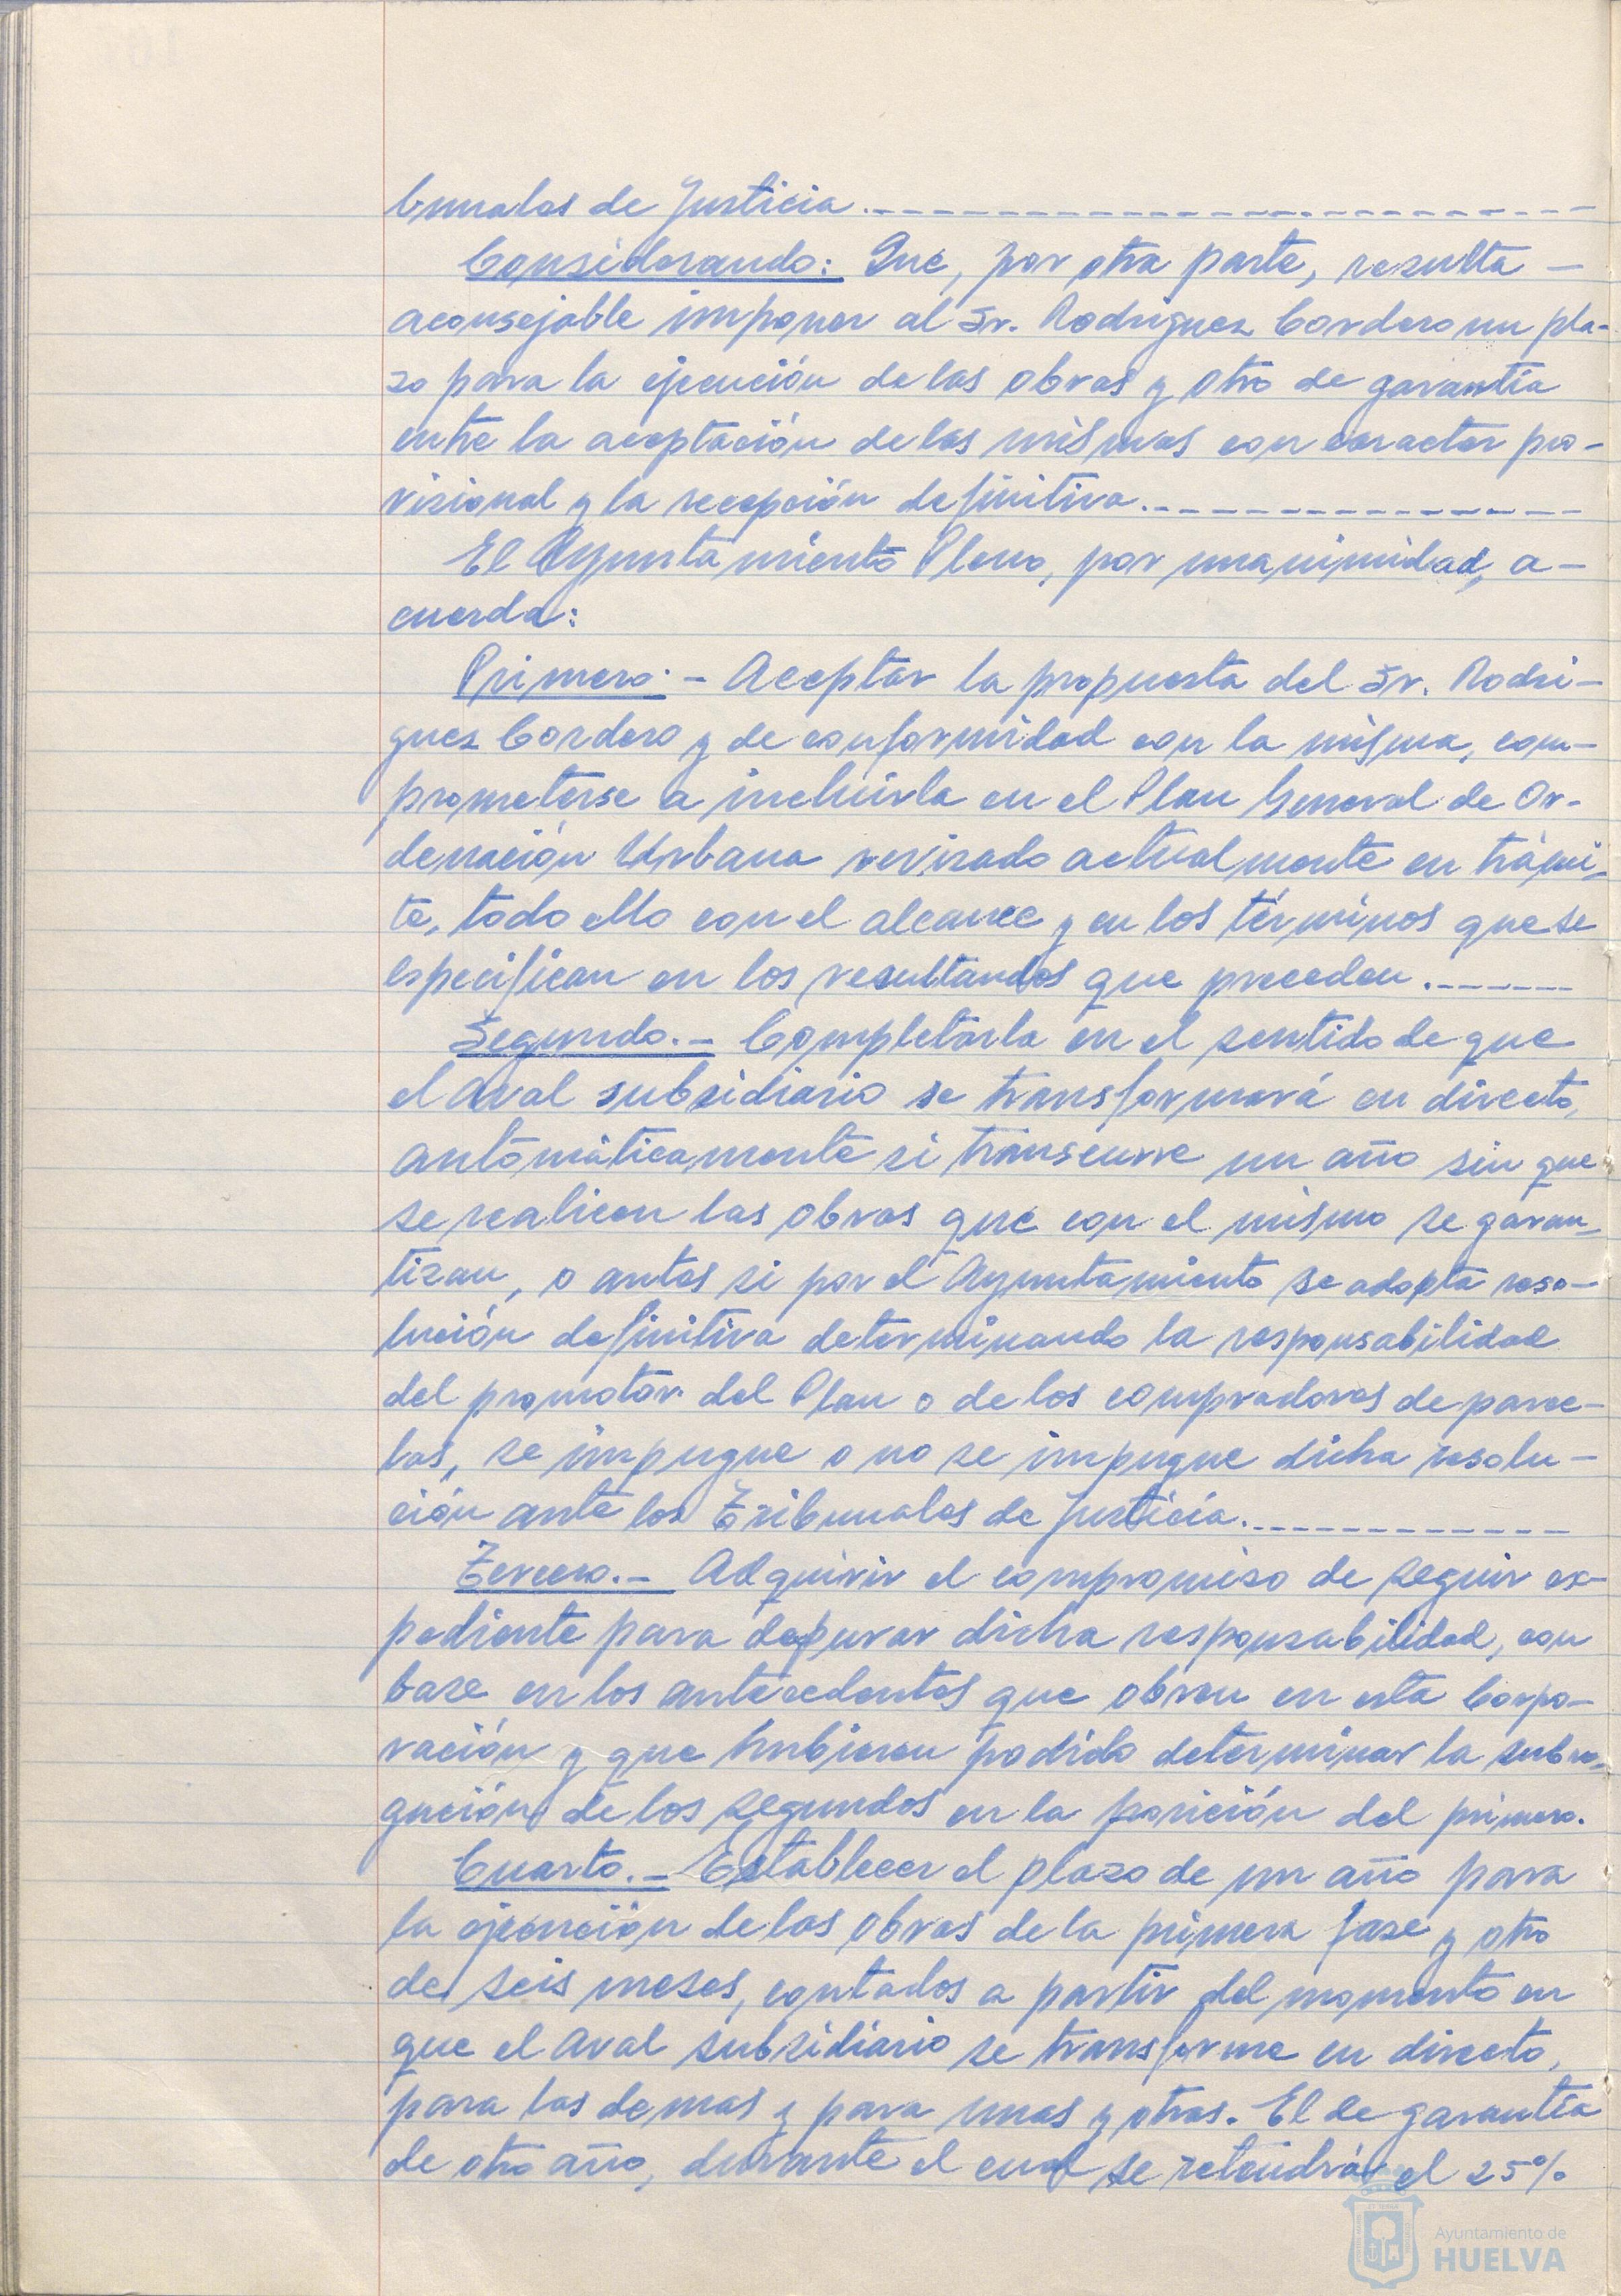 bunales de Justicia.
Considerando: Que, por otra parte, resulta –
aconsejable imponer al Sr. Rodriguez Cordero un pla-
zo para la ejecución de las obras y otro de garantía
entre la aceptación de las mismas con caracter pro-
visional y la recepción definitiva.
El Ayuntamiento Pleno, por unanimidad, a-
cuerda:
Primero.- Aceptar la propuesta del Sr. Rodri-
guez Cordero y de conformidad con la misma, com-
prometerse a incluirla en el Plan General de Or-
denación Urbana revisado actualmente en trámi-
te, todo ello con el alcance y en los términos que se
especifican en los resultandos que preceden.
Segundo.- Completarla en el sentido de que
el Aval subsidiario se transformará en directo,
automáticamente si transcurre un año sin que
se realicen las obras que con el mismo se garan-
tizan, o antes si por el Ayuntamiento se adopta reso-
lución definitiva determinando la responsabilidad
del promotor del Plan o de los compradores de parce-
las, se impugne o no se impugne dicha resolu-
ción ante los Tribunales de Justicia.
Tercero.- Adquirir el compromiso de seguir ex-
pediente para depurar dicha responsabilidad, con
base en los antecedentes que obren en esta Corpo-
ración y que hubieren podido determinar la subro-
gación de los segundos en la posición del primero.
Cuarto.- Establecer el plazo de un año para
la ejecución de las obras de la primera fase y otro
de seis meses, contados a partir del momento en
que el Aval subsidiario se transforme en directo,
para las demas y para unas y otras. El de garantía
de otro año, durante el cual se retendrá el 25%
Ayuntamiento de
HUELVA